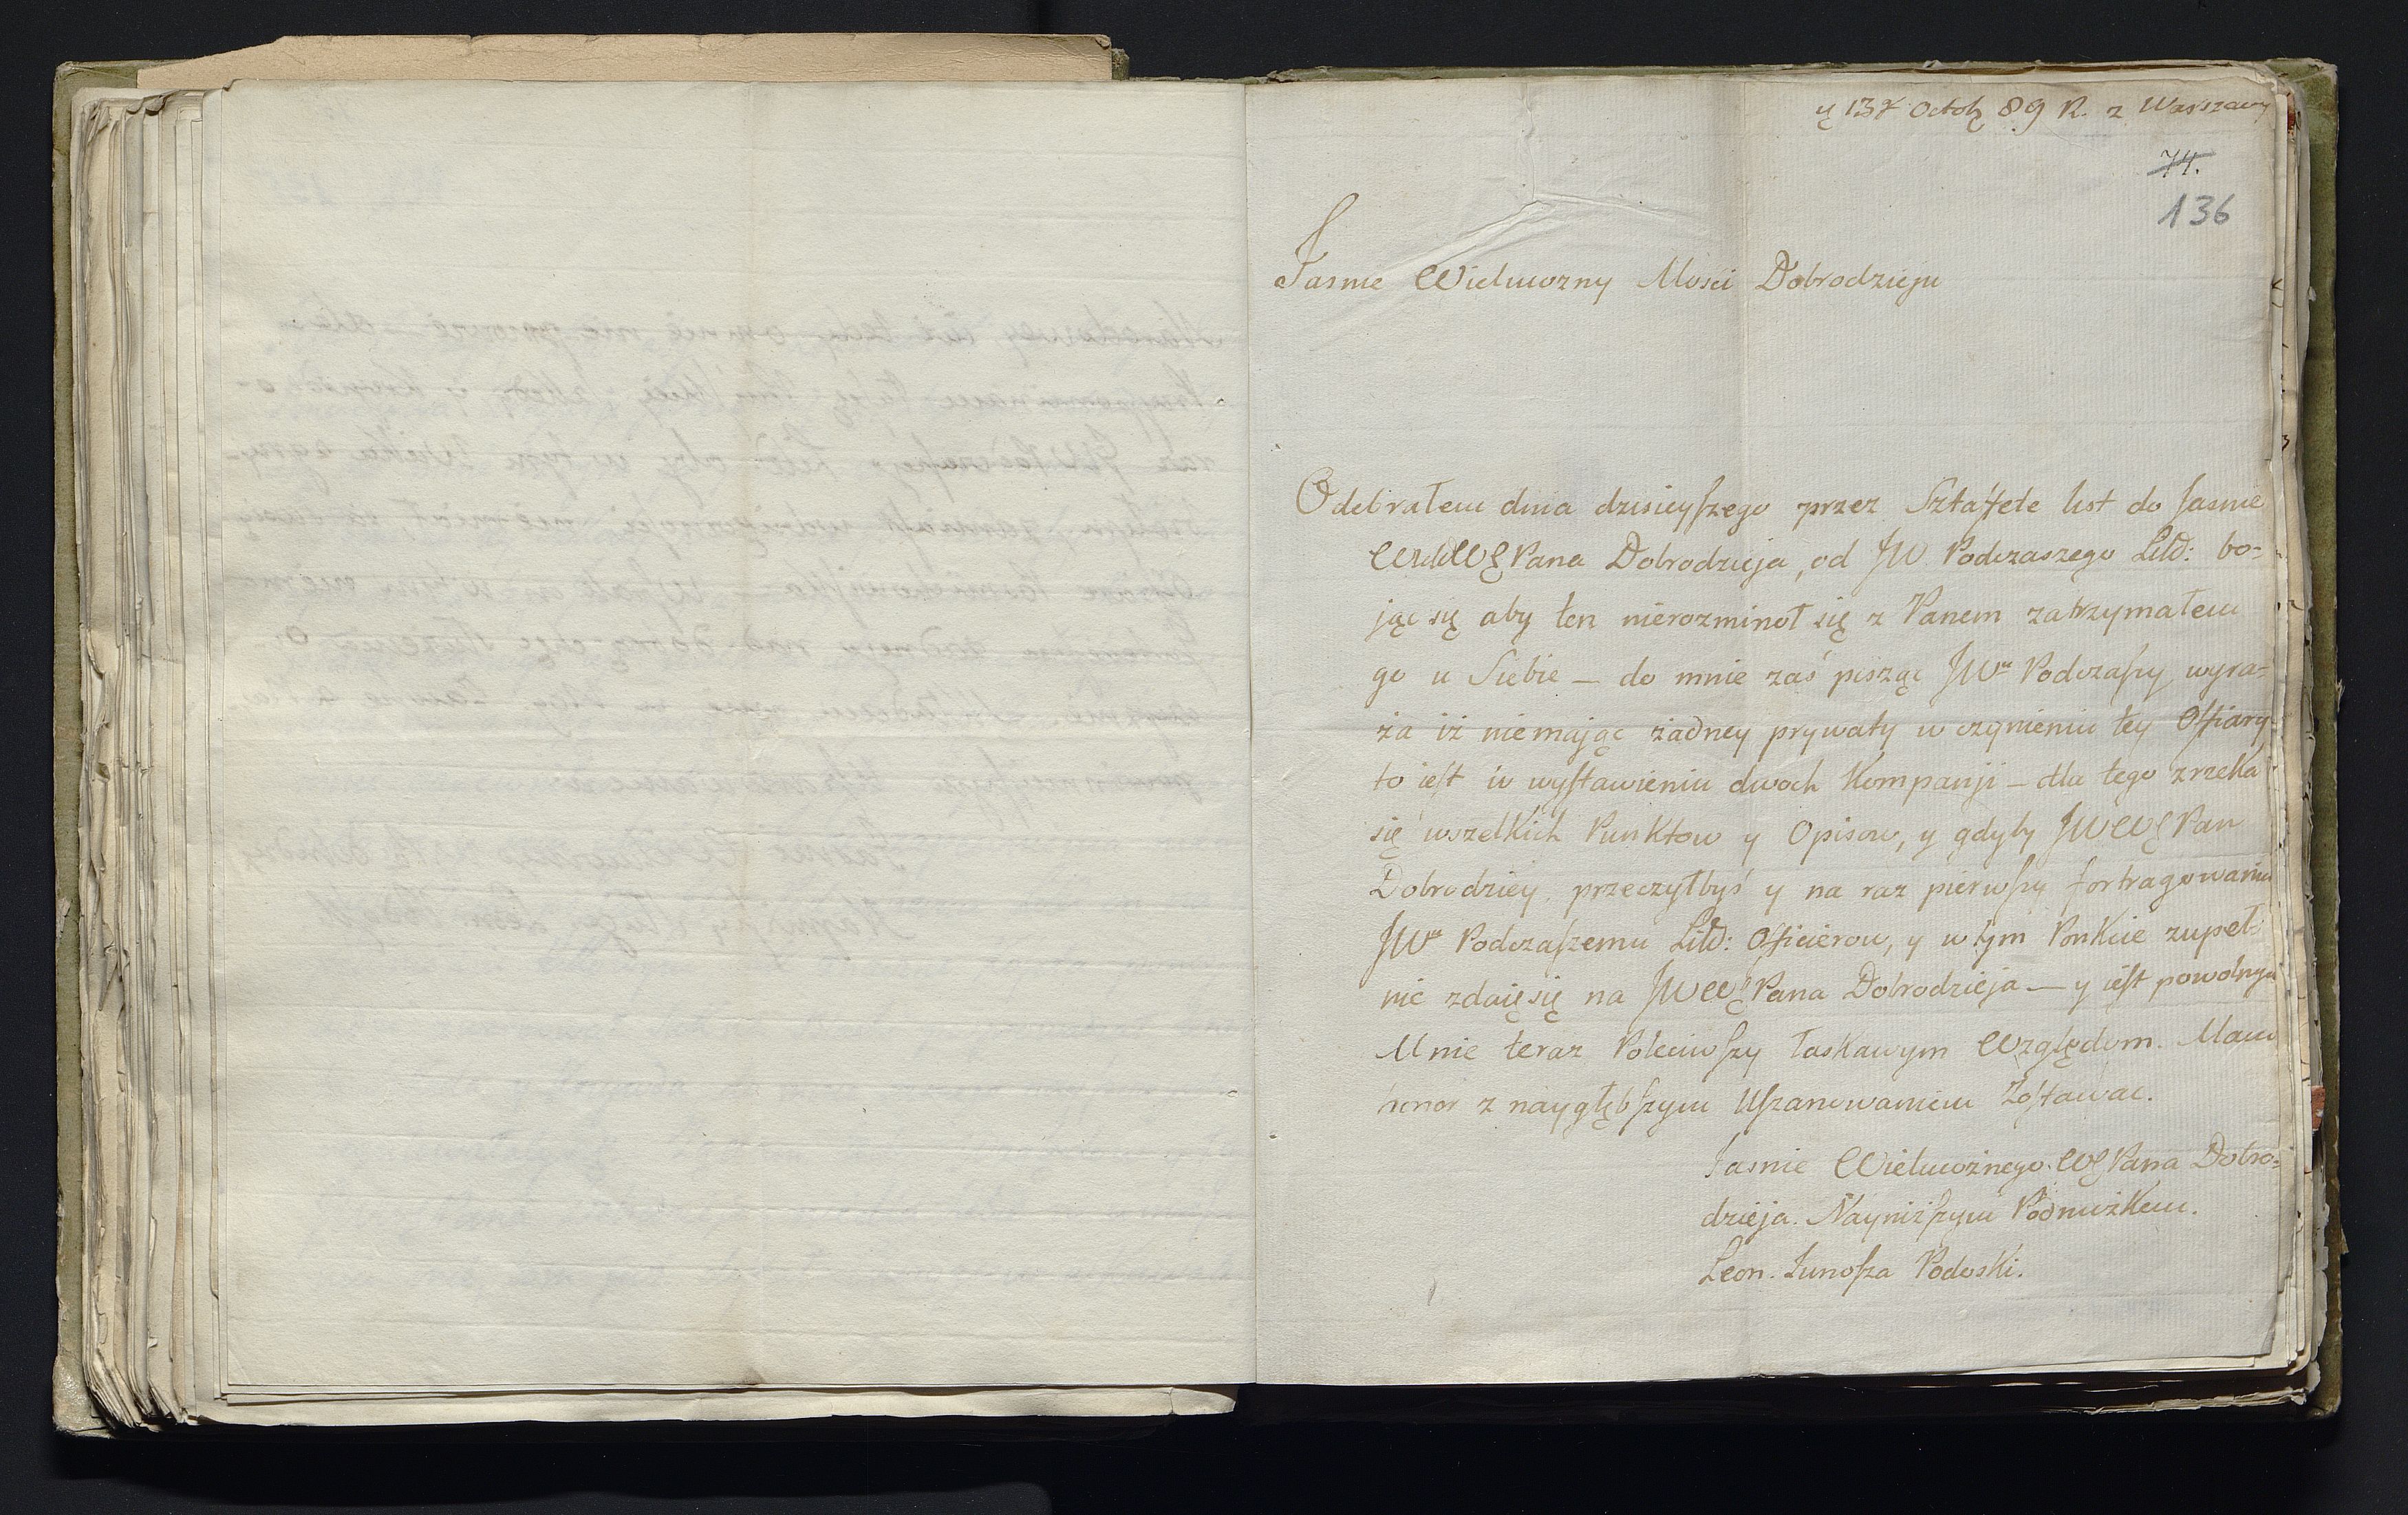 13 Octob 89 R. z Warszawy
74.
136
Jasnie Wielmozny Mosci Dobrodzieju
Odebrałem dnia dzisieyszego przez Sztaffete list do Jasnie
Pana Dobrodzieja, od JW Podczaszego Litt: bo-
jąc się aby ten nierozminoł się z Panem zatrzymałem
go u Siebie — do mnie zaś pisząc JWn Podczaszy wyra-
ża iż niemając żadney prywaty w czynieniu tey Offiary
to iest w wystawieniu dwoch Kompanji — dla tego zrzeka
się wszelkich Punktow y Opisow, y gdyby JWW Pan
Dobrodziey przeczytbyś y na raz pierwszy fortragowaniu
JWu Podczaszemu Litt: Officierow, y w tym Ponkcie zupeł-
nie zdaię się na JWW Pana Dobrodzieja — y iest powolnym
Mnie teraz Poleciwszy łaskawym Względom. Mam
honor z naygłębszym Uszanowaniem Zostawac.
Jasnie Wielmożnego W Pana Dobro-
dzieja. Nayniższym Podnużkem.
Leon. Junosza Podoski.